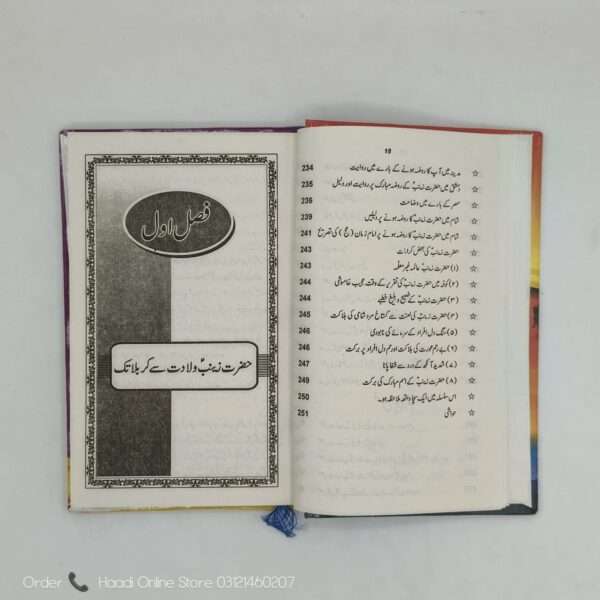 10
☆ مدینہ میں آپ کا روضہ ہونے کے بارے میں روایت 234
☆ دمشق میں حضرت زینبؑ کے روضہ مبارک پر روایت اور دلیل 235
☆ مصر کے بارے میں وضاحت 238
☆ شام میں حضرت زینبؑ کا روضہ ہونے پر دلیلیں 239
☆ شام میں حضرت زینبؑ کا روضہ ہونے پر امام زمان (عج) کی تصریح 241
☆ حضرت زینبؑ کی بعض کرامات 243
☆ (۱) حضرت زینبؑ عالمہ غیر معلمہ 243
☆ (۲) کوفہ میں حضرت زینبؑ کی تقریر کے وقت عجیب خاموشی 243
☆ (۳) حضرت زینبؑ کے فصیح و بلیغ خطبے 244
☆ (۴) حضرت زینبؑ کی لعنت سے گستاخ مرد شامی کی ہلاکت 245
☆ (۵) سنگ دل افراد کے سردے کی نابودی 245
☆ (۶) بے رحم عورت کی ہلاکت اور رحم دل افراد پر برکت 246
☆ (۷) شدید آنکھ کے درد سے شفا پانا 247
☆ (۸) حضرت زینبؑ کے اسم مبارک کی برکت 249
☆ اس سلسلہ میں ایک سچا واقعہ ملاحظہ ہو۔ 250
☆ حواشی 251
فصل اول
حضرت زینبؑ ولادت سے کربلا تک
Order Haadi Online Store 03121460207